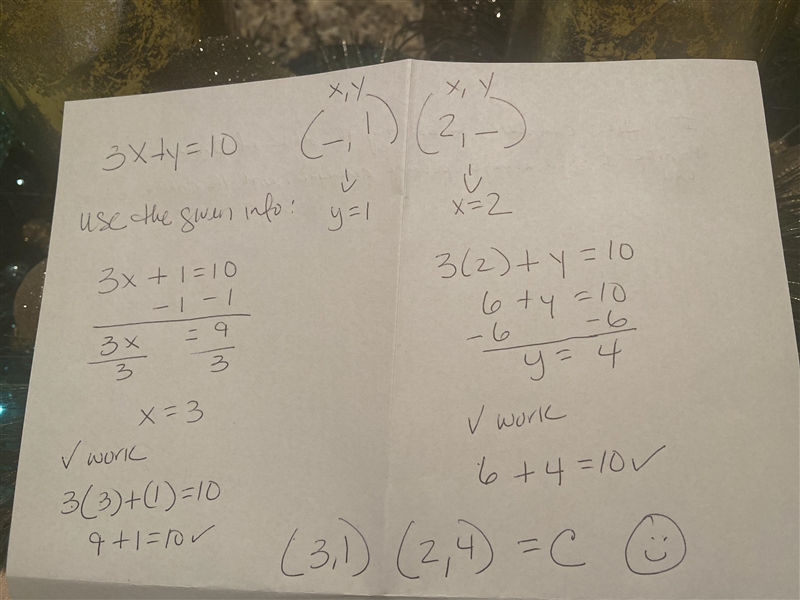 x, y x, y
3x+y=10 (–, 1) (2, –)
use the given info: y=1 x=2
3x + 1 = 10
-1 -1
3x = 9
3 3
x = 3
√ work
3(3)+(1)=10
9+1=10✓
3(2) + y = 10
6 + y = 10
-6 -6
y = 4
√ work
6 + 4 = 10✓
(3,1) (2,4) = C